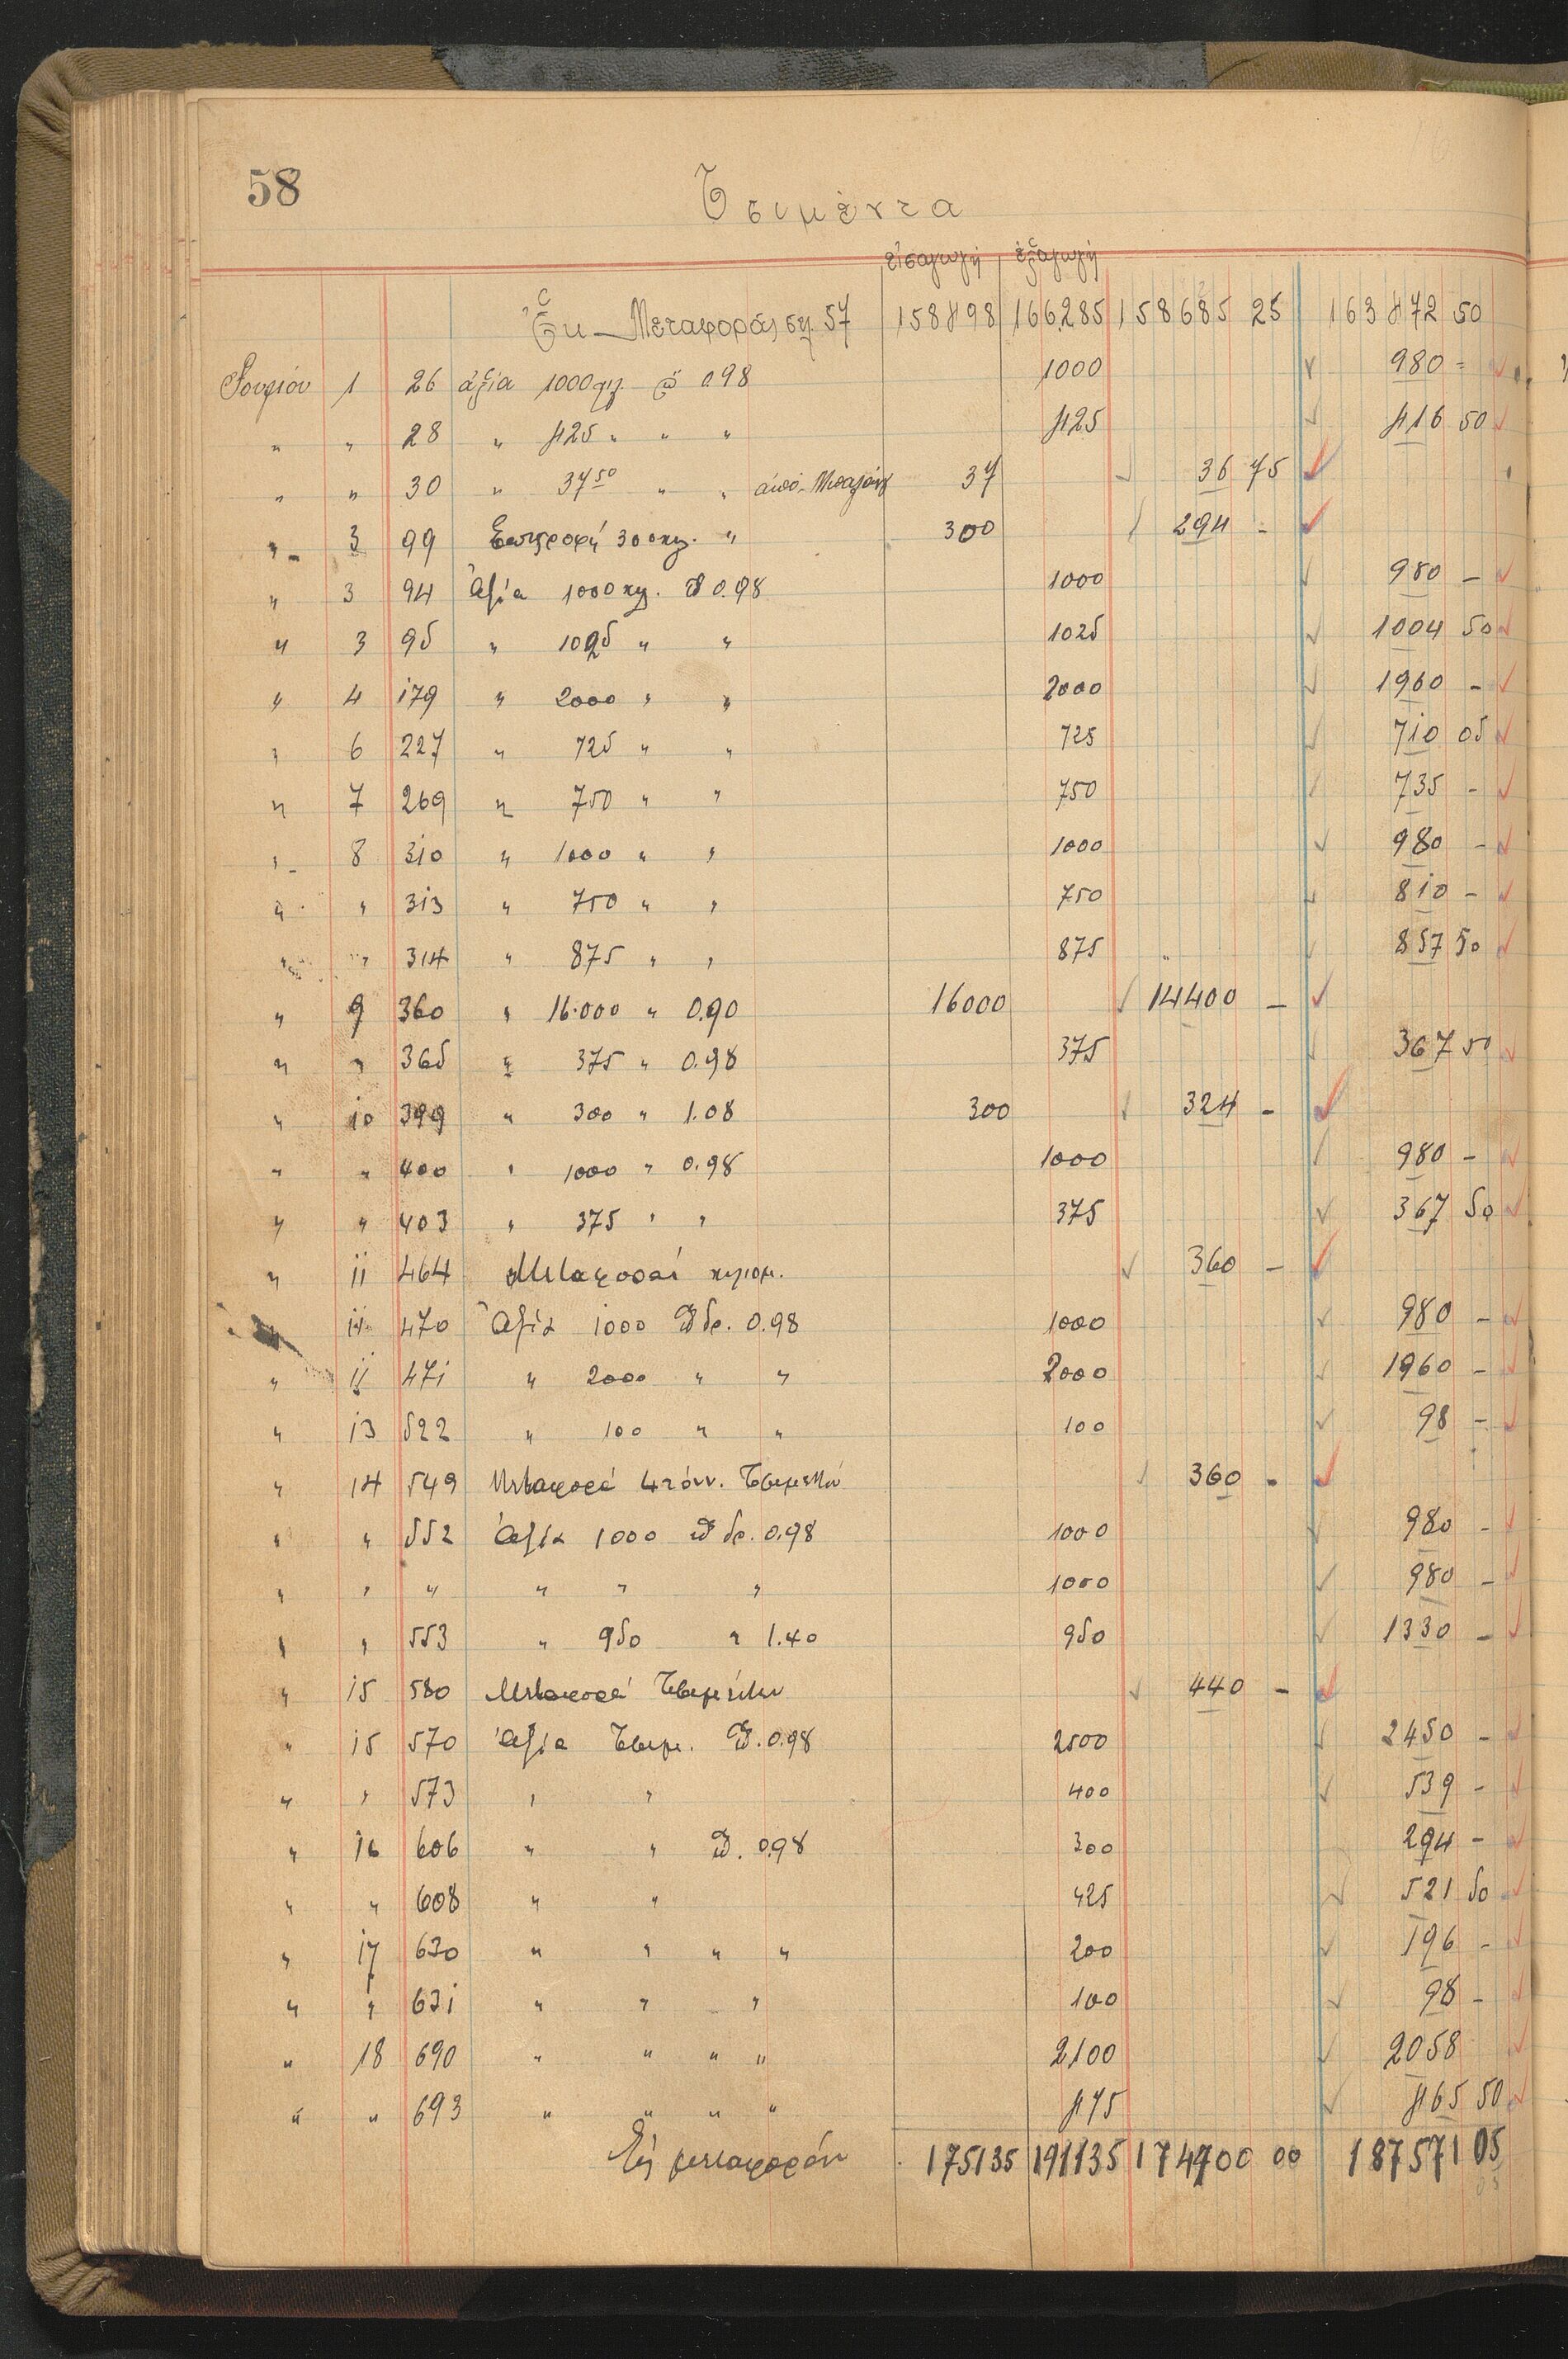 58
Τσιμέντα
εἰσαγωγή ἐξαγωγή
Ἐκ Μεταφορᾶς σελ. 57 158498 166.285 158685 25 163472 50
Ἰουνίου 1 26 ἀξία 1000 χιλ 0.98 1000 980 =
" " 28 " 425 " " " 425 416 50
" " 30 " 37 50 " " ἀπὸ 37 36 75
" 3 99 Ἐπιστροφή 300 χιλ. " 300 294 -
" 3 94 Ἀξία 1000 χιλ. 0.98 1000 980 -
" 3 95 " 1025 " " 1025 1004 50
" 4 179 " 2000 " " 2000 1960 -
" 6 227 " 725 " " 725 710 05
" 7 269 " 750 " " 750 735 -
" 8 310 " 1000 " " 1000 980 -
" " 313 " 750 " " 750 810 -
" " 314 " 875 " " 875 857 50
" 9 360 " 16.000 " 0.90 16000 14400 -
" " 365 " 375 " 0.98 375 367 50
" 10 399 " 300 " 1.08 300 324 -
" " 400 " 1000 " 0.98 1000 980 -
" " 403 " 375 " " 375 367 50
" 11 464 Μεταφοραί 360 -
" 11 470 Ἀξία 1000 δρ. 0.98 1000 980 -
" 11 471 " 2000 " " 2000 1960 -
" 13 522 " 100 " " 100 98 -
" 14 549 Μεταφορά 4 τόνν. Τσιμέντων 360 -
" " 552 Ἀξία 1000 δρ. 0.98 1000 980 -
" " " " " " 1000 980 -
" " 553 " 950 " 1.40 950 1330 -
" 15 580 Μεταφορά Τσιμέντων 440 -
" 15 570 Ἀξία Τσιμ. 0.98 2500 2450 -
" " 573 " " 400 539 -
" 16 606 " " 0.98 300 294 -
" " 608 " " 425 521 50
" 17 630 " " " " 200 196 -
" " 631 " " " 100 98 -
" 18 690 " " " " 2100 2058
" " 693 " " " " 475 465 50
Εἰς μεταφοράν 175135 191135 174900 00 187571 05